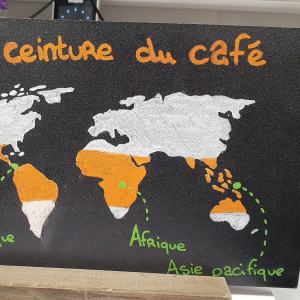 ceinture du café
Afrique
Asie pacifique